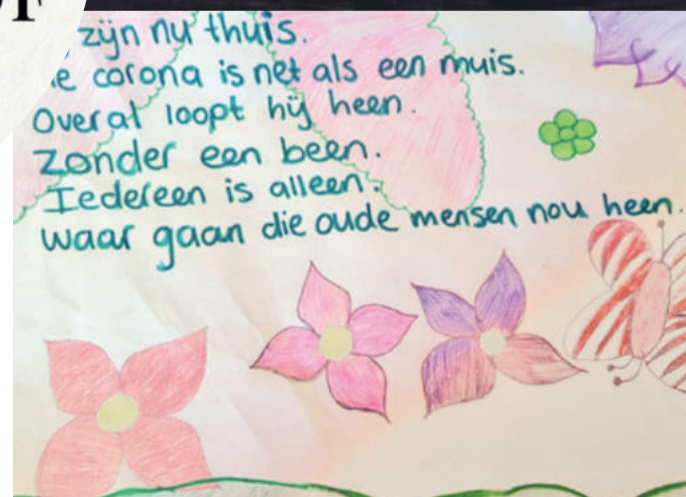 zijn nu thuis.
corona is net als een muis.
Overal loopt hij heen.
Zonder een been.
Iedereen is alleen.
waar gaan die oude mensen nou heen.